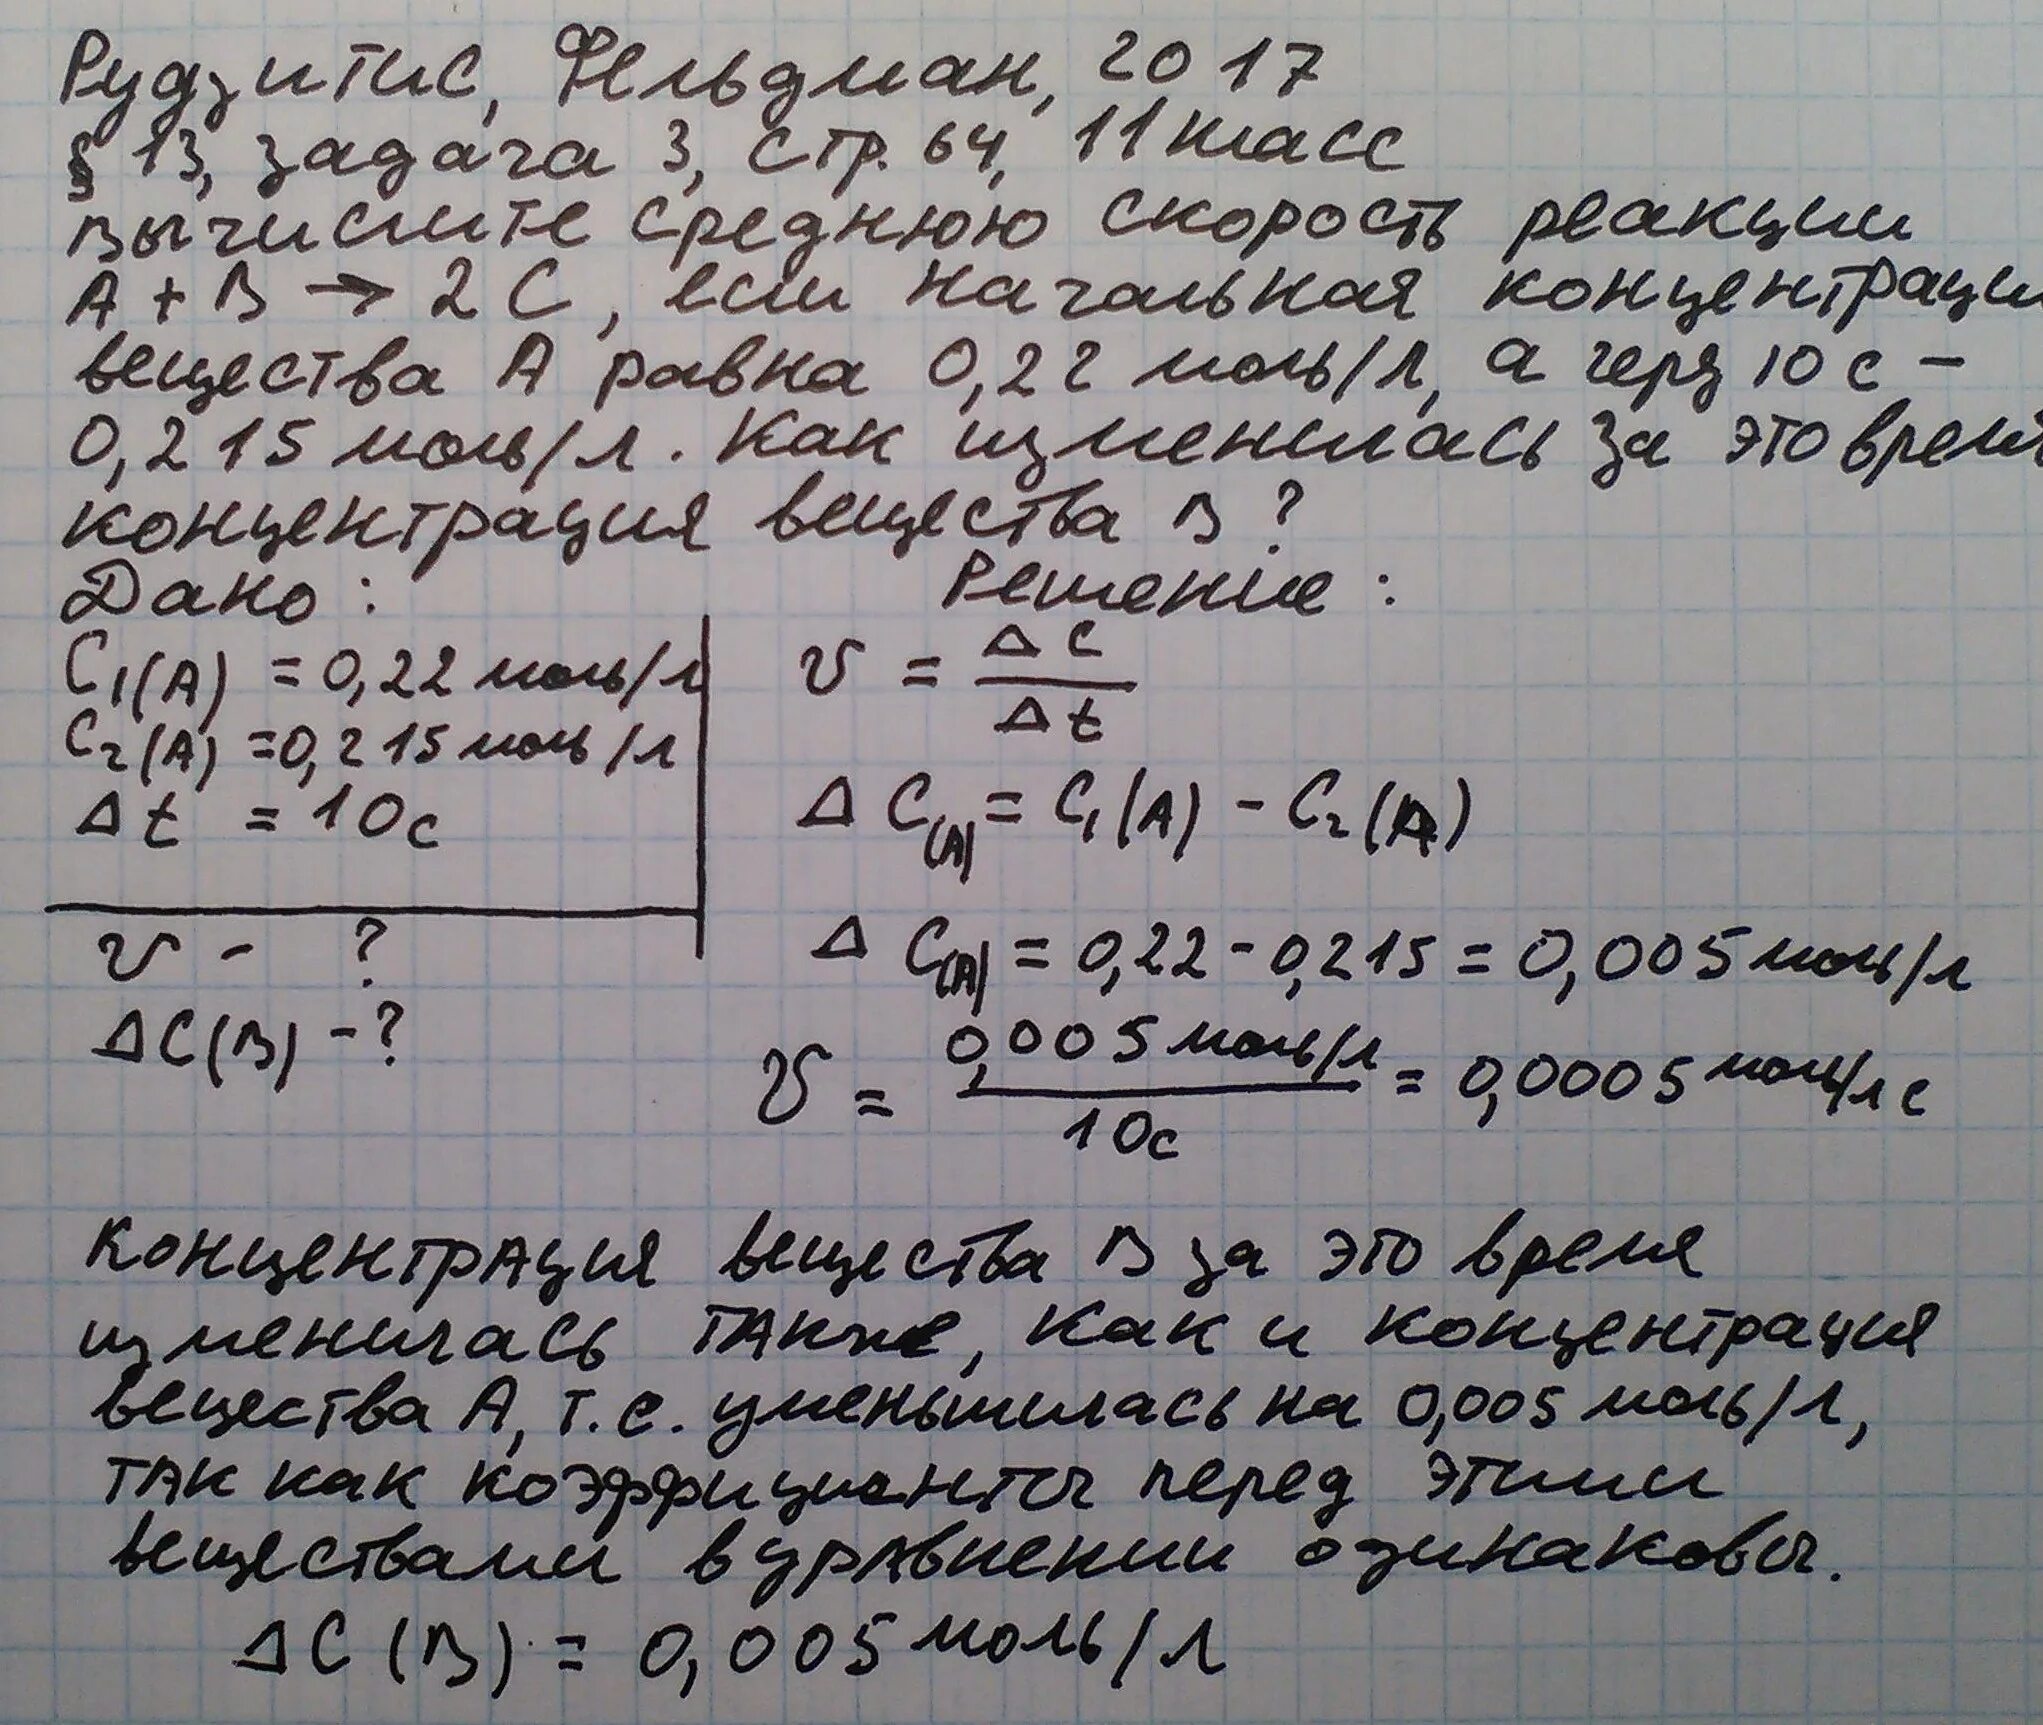 Рудзитис, Фельдман, 2017
§ 13, задача 3, стр. 64, 11 класс
Вычислите среднюю скорость реакции
A + B → 2C, если начальная концентраци
вещества A равна 0,22 моль/л, а через 10 с –
0,215 моль/л. Как изменилась за это врем
концентрация вещества B?
Дано:
C₁(A) = 0,22 моль/л
C₂(A) = 0,215 моль/л
Δt = 10с
v - ?
ΔC(B) - ?
Решение:
v = ΔC / Δt
ΔC(A) = C₁(A) - C₂(A)
ΔC(A) = 0,22 - 0,215 = 0,005 моль/л
v = 0,005 моль/л / 10с = 0,0005 моль/л с
Концентрация вещества B за это время
изменилась также, как и концентрация
вещества A, т.е. уменьшилась на 0,005 моль/л,
так как коэффициенты перед этими
веществами в уравнении одинаковы.
ΔC(B) = 0,005 моль/л